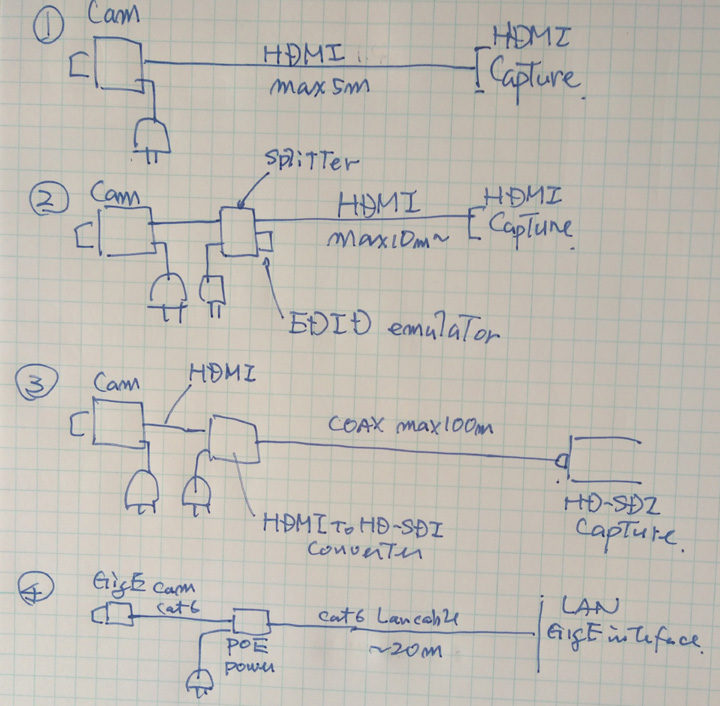 ① Cam
HDMI
max5m
HDMI
Capture.
splitter
② Cam
HDMI
max10m~
HDMI
Capture.
EDID emulator
③ Cam
HDMI
COAX max100m
HDMI To HD-SDI
converter
HD-SDI
Capture.
④ GigE cam
cat6
POE
power
cat6 Lancable
~20m
LAN
GigE inteface.